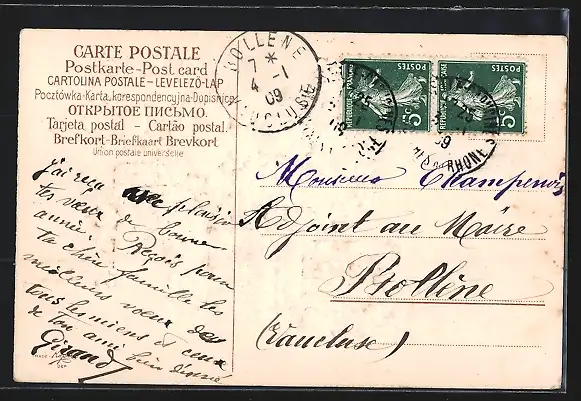 CARTE POSTALE
Postkarte-Post card
CARTOLINA POSTALE-LEVELEZÖ-LAP
Pocztówka-Karta korespondencyjna-Dopisnice
ОТКРЫТОЕ ПИСЬМО.
Tarjeta postal - Cartão postal.
Brefkort-Briefkaart Brevkort
Union postale universelle
BOLLENE
7 *
4 -1
09
VAUCLUSE
REPUBLIQUE FRANÇAISE
POSTES
5c
REPUBLIQUE FRANÇAISE
POSTES
5c
DU RHONE
Monsieur Champenois
Adjoint au Maire
Bollène
(Vaucluse)
J'ai reçu avec plaisir
tes vœux de bonne
année. Reçois pour
ta chère famille les
meilleurs vœux de
tous les miens et ceux
de ton ami bien dévoué
Giraud